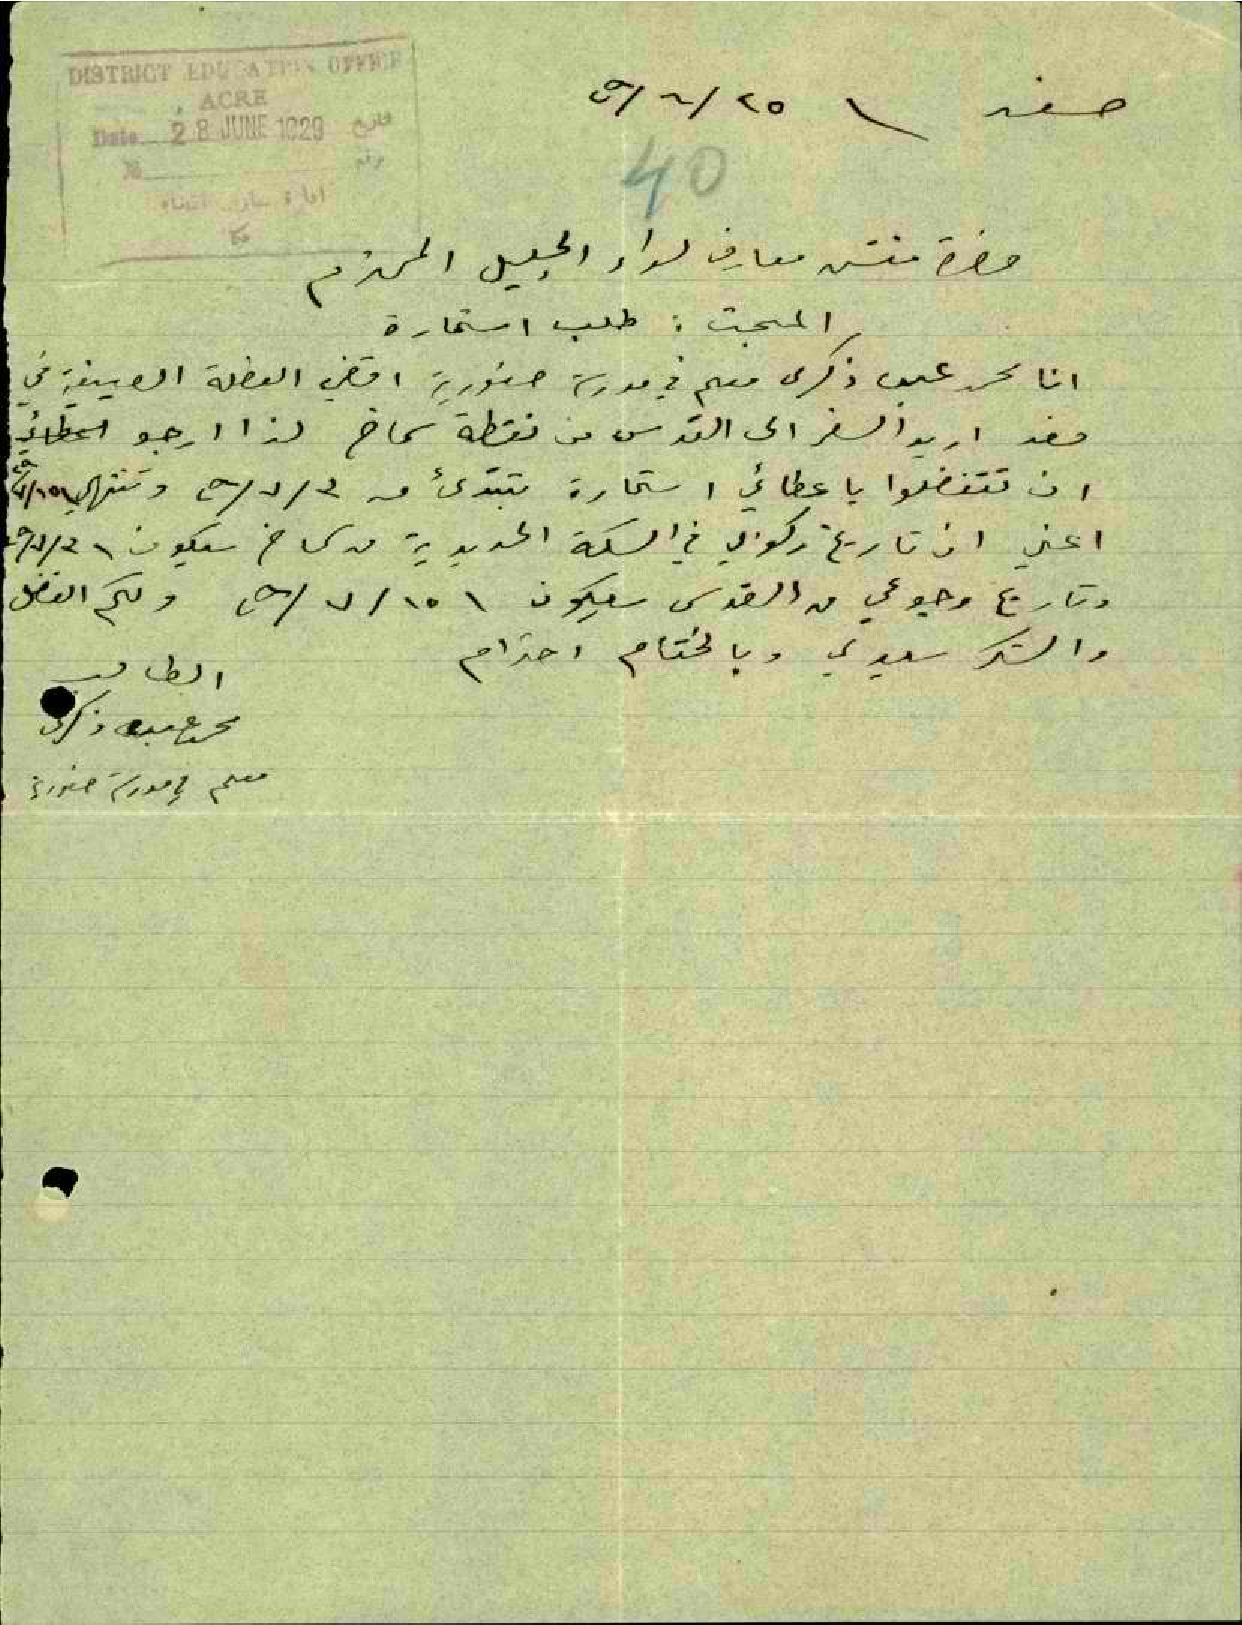 DISTRICT EDUCATION OFFICE
ACRE
Date 28 JUNE 1929 تاريخ
№ نمرة
ادارة معارف
عكا
صفد ٢٥/٦/٢٩
40
حضرة مفتش معارف لواء الجليل المحترم
المبحث : طلب استمارة
انا محمد ذكرى معلم في مدرسة صفورية اقضي العطلة الصيفية في
صفد اريد السفر الى القدس من نقطة سماخ لذا ارجو
ان تتفضلوا باعطائي استمارة تبتدئ من ٣/٧/٢٩ وتنتهي ١٥/٧/٢٩
اعني ان تاريخ ركوبي في السكة الحديدية من سماخ سيكون ٣/٧/٢٩
وتاريخ رجوعي من القدس سيكون ١٥/٧/٢٩ ولكم الفضل
والشكر سيدي وبالختام احترام
الطالب
محمد ذكرى
معلم في مدرسة صفورية